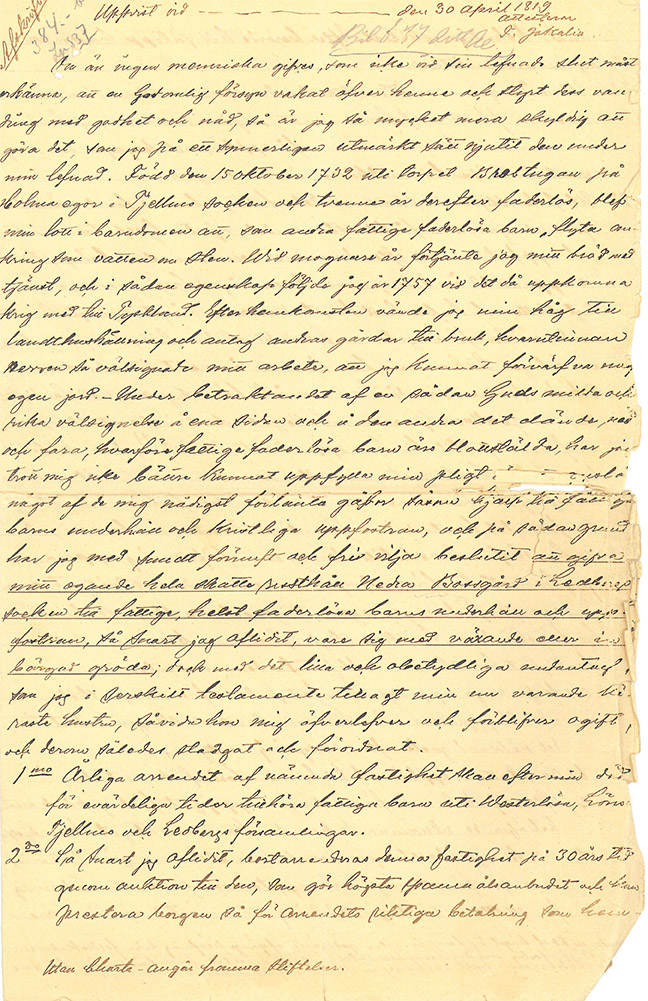 Afskrift
384.
Uppvist vid den 30 April 1819
attesterar
J. Zakalin
Bil. § 87 Litt Ae
Om än ingen menniska gifves, som icke vid sin lefnads slut måste
erkänna, att en Gudomlig försyn vakat öfver henne och styrt dess van-
dring med godhet och nåd, så är jag så mycket mera skyldig att
göra det, som jag på ett synnerligen utmärkt sätt njutit den under
min lefnad. Född den 15 Oktober 1732 uti torpet Brostugan på
Tolma egor i Fjellmo socken och tvenne år derefter faderlös, blef
min lott i barndomen att, som andra fattige faderlösa barn, flyta om-
kring som vatten om sten. Wid mognare år förtjente jag mitt bröd med
tjenst, och i sådan egenskap följde jag år 1757 vid det då uppkomna
krig med till Tyskland. Efter hemkomsten vände jag min håg till
landthushållning och antog andras gårdar till bruk, hvarutinnan
Herren så välsignade mitt arbete, att jag kunnat förvärfva mig
egen jord. – Under betraktandet af en sådan Guds milda och
rika välsignelse å ena sidan och å den andra det elände, nöd
och fara, hvarföre fattige faderlösa barn äro blottstälda, har jag
trott mig icke bättre kunnat uppfylla min pligt
något af de mig nådigst förlänta gåfvor såsom hjelp till fattige
barns underhåll och kristliga uppfostran, och på sådan grund
har jag med sundt förnuft och fri vilja beslutit att gifva
mitt egande hela skatte Nedra Bossgård i Ledbergs
socken till fattige, helst faderlösa barns underhåll och upp-
fostran, så snart jag aflidit, vare sig med växande eller in-
bärgad gröda; dock med det lilla och obetydliga undantag,
som jag i serskilt testamente tillagt min nu varande kä-
raste hustru, såvida hon mig öfverlefver och förblifver ogift,
och derom således stadgat och förordnat.
1mo Årliga arrendet af nämnda fastighet skall efter min död
för evärdeliga tider tillhöra fattiga barn uti Westerlösa,
Fjellmo och Ledbergs församlingar.
2do Så snart jag aflidit, bortarrenderas denna fastighet på 30 års tid
genom auktion till den, som gör högsta spannmålsanbudet och kan
prestera borgen så för arrendets riktiga betalning som hem-
Utan Charta – angår fromma stiftelser.